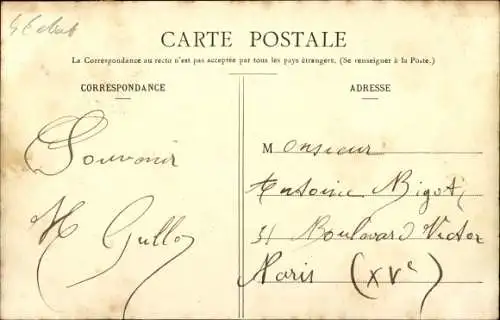 CARTE POSTALE
La Correspondance au recto n'est pas acceptée par tous les pays étrangers. (Se renseigner à la Poste.)
CORRESPONDANCE
ADRESSE
Souvenir
Monsieur
Antoine Bigot
31 Boulevard Victor
Paris (XVe)